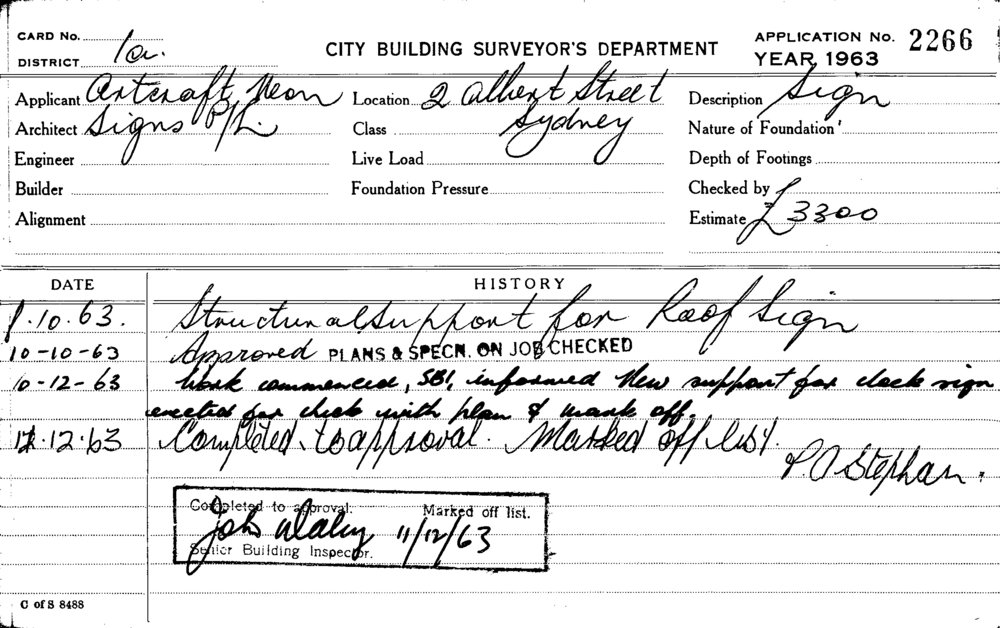 CARD No.
DISTRICT 1a.
CITY BUILDING SURVEYOR'S DEPARTMENT
APPLICATION No. 2266
YEAR 1963
Applicant Artcraft Neon Location 2 Albert Street Description Sign
Architect Signs P/L. Class Sydney Nature of Foundation
Engineer Live Load Depth of Footings
Builder Foundation Pressure Checked by
Alignment Estimate £3300
DATE HISTORY
8.10.63. Structural support for Roof Sign
10-10-63 Approved PLANS & SPECN. ON JOB CHECKED
10-12-63 Work commenced, SBI, informed New support for clock sign
erected for check with plan & mark off.
12.63 Completed to approval. Marked off list.
P.O Stephan.
Completed to approval. Marked off list.
John Daley 11/12/63
Senior Building Inspector.
C of S 8488